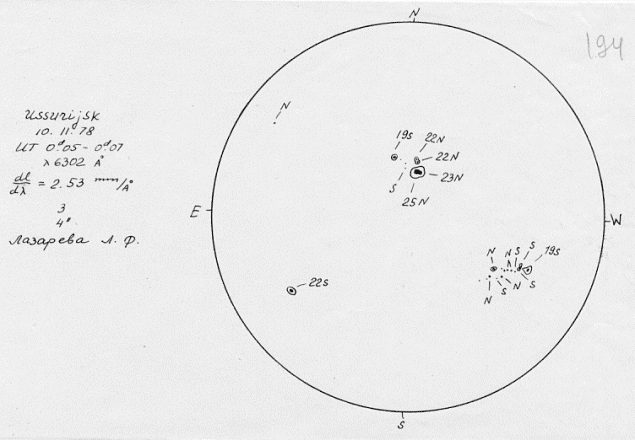 N
194
Ussurijsk
10. 11. 78
UT 0ᵈ05 - 0ᵈ07
λ 6302 Å
dl/dλ = 2.53 mm/Å
3
4"
Лазарева Л. Ф.
N
19S
22N
22N
23N
S
25N
E
W
N
N
S
S
19S
N
S
N
S
22S
S